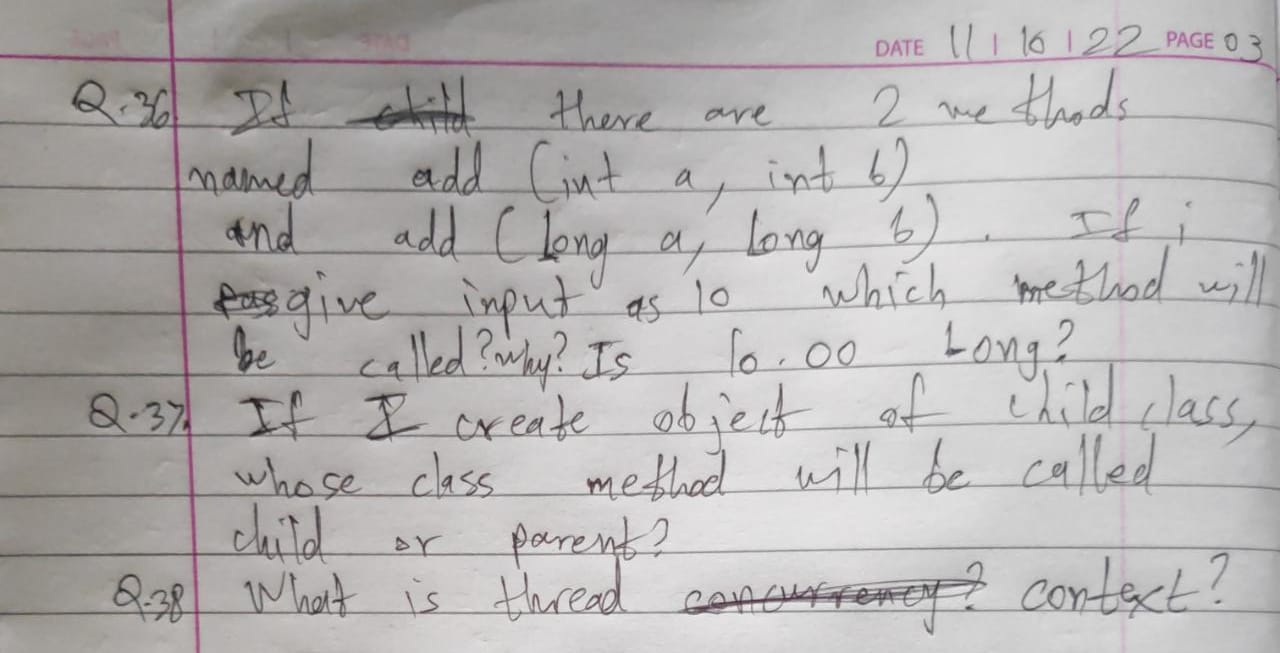 DATE 11 | 10 | 22 PAGE 03
Q.36 If child there are 2 methods
named add (int a, int b)
and add (Long a, Long b). If i
pass give input as 10 which method will
be called? why? Is 10.00 Long?
Q.37. If I create object of child class,
whose class method will be called
child or parent?
Q.38 What is thread concurrency? context?